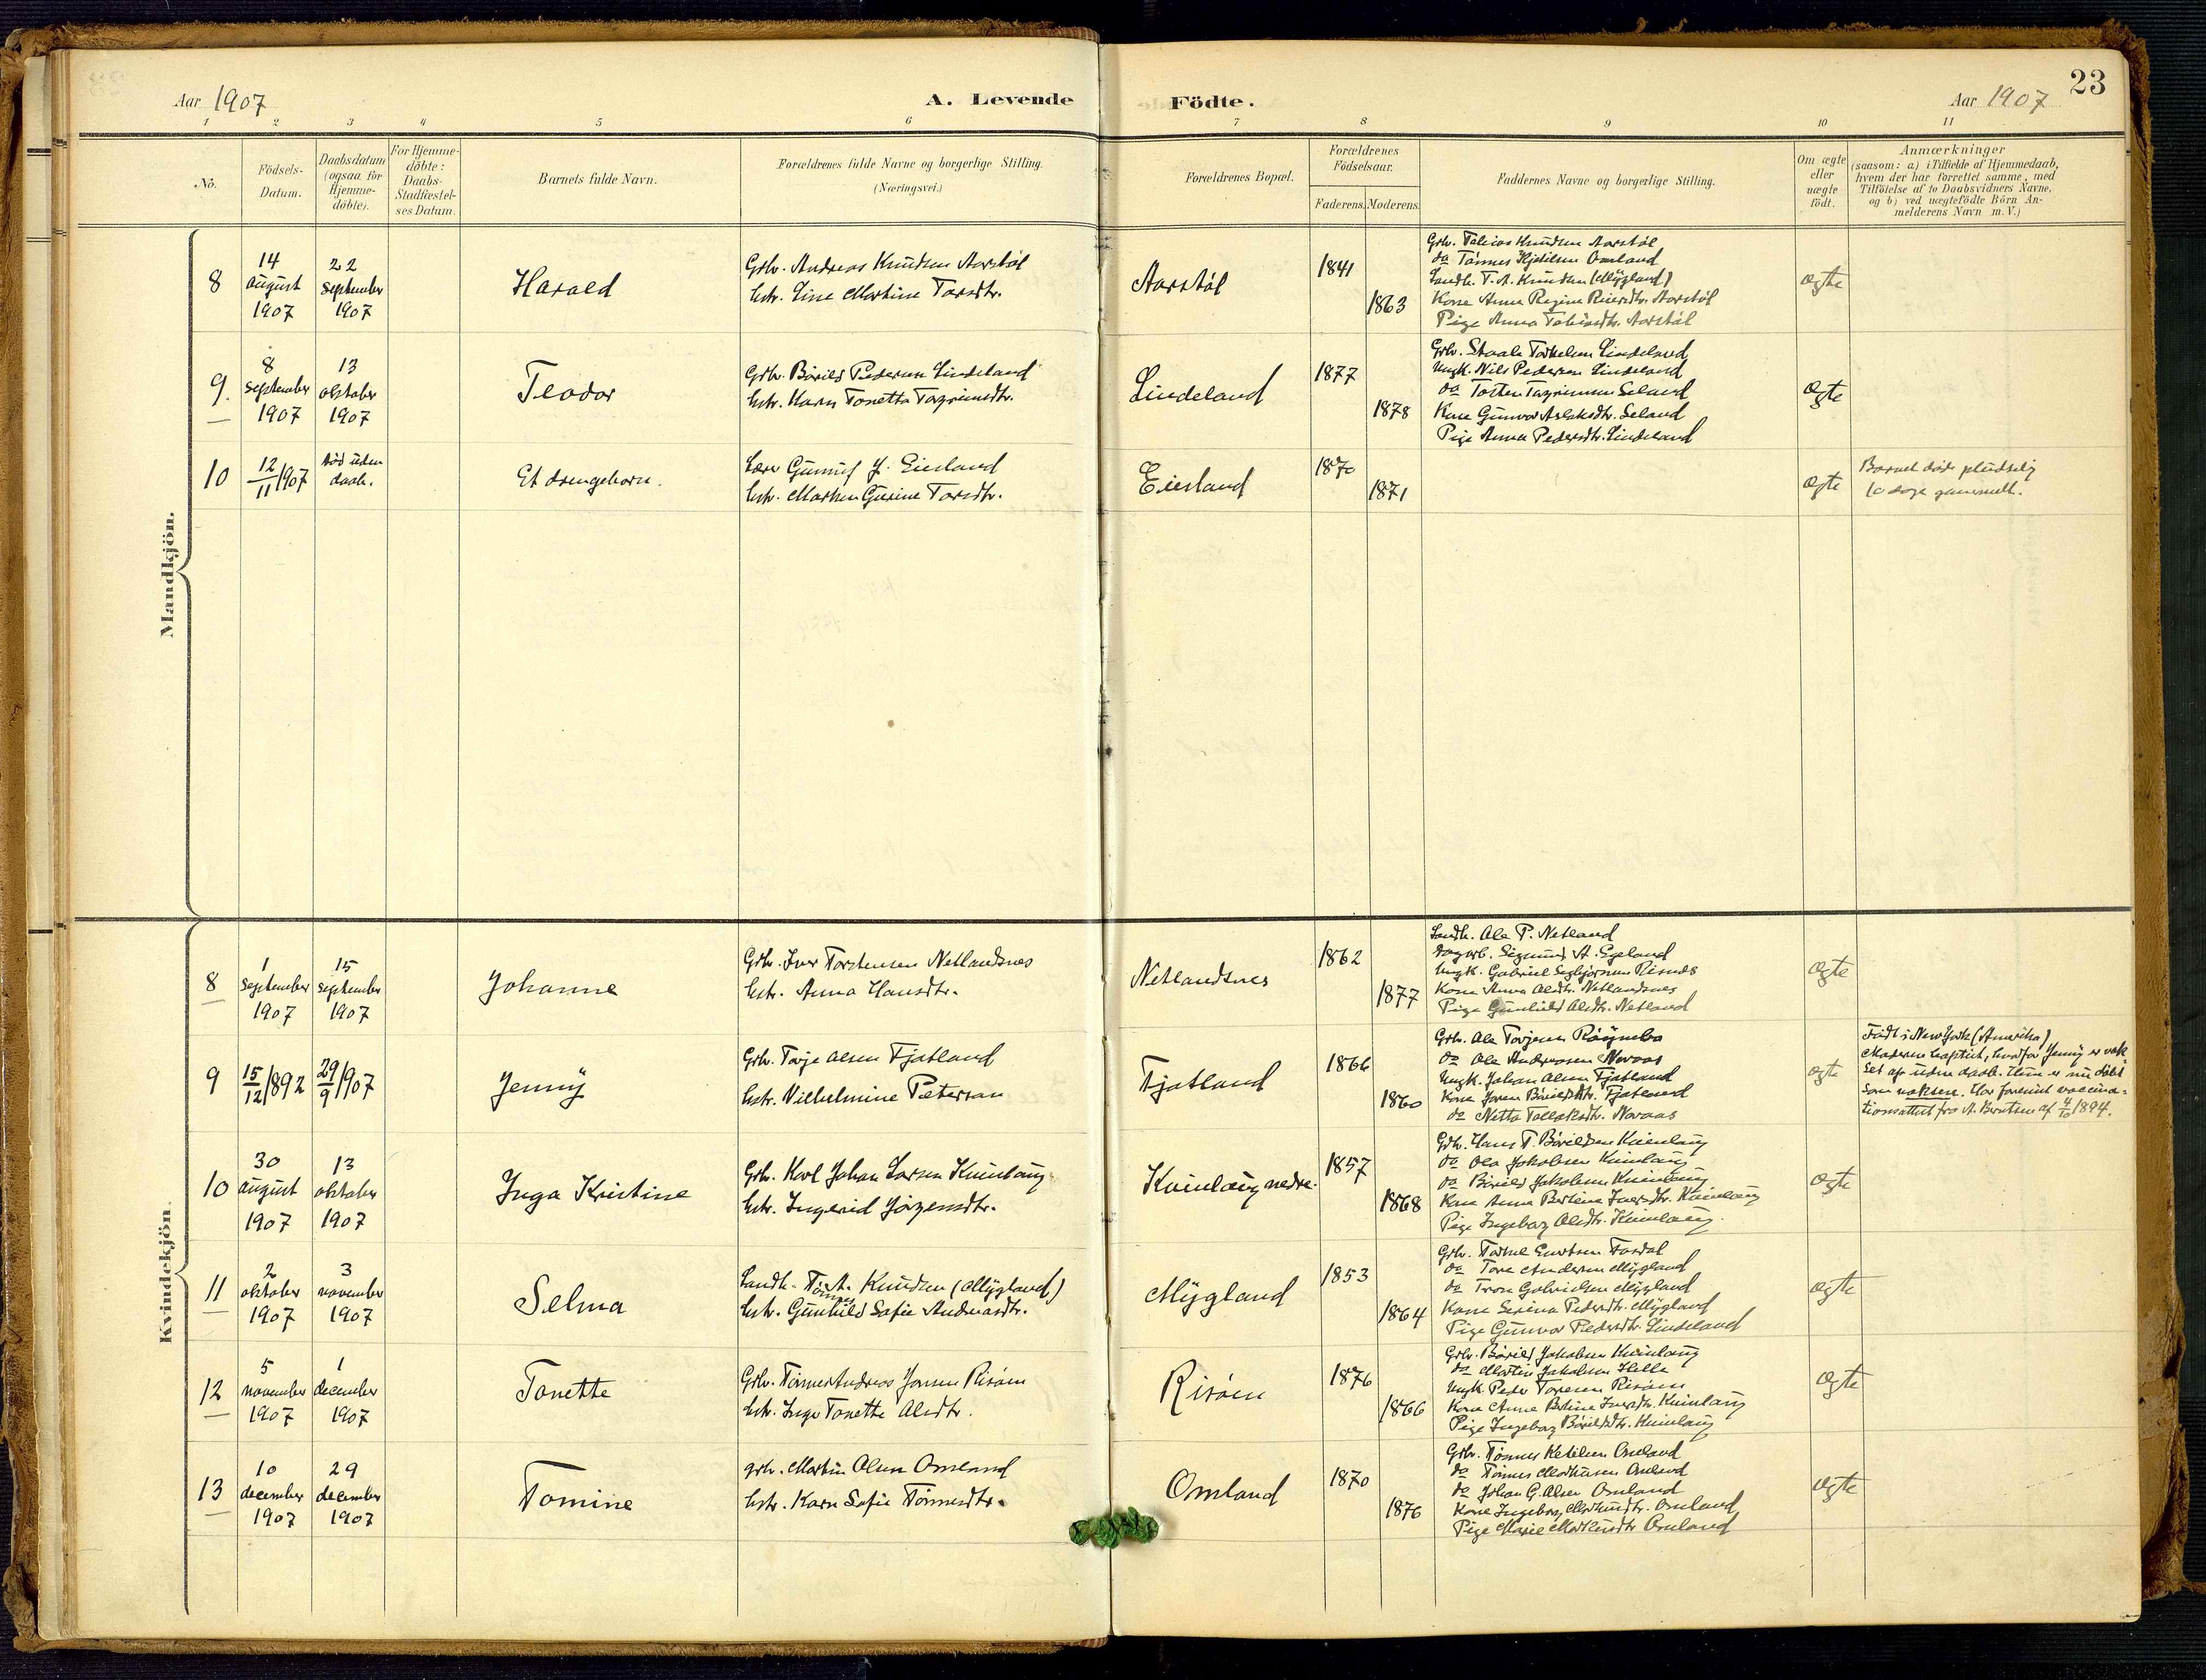 23
Aar 1907
A. Levende
Födte.
Aar 1907
1 2 3 4 5 6 7 8 9 10 11
No.
Födsels-
Datum.
Daabsdatum
(ogsaa for
Hjemme-
döbte).
For Hjemme-
döbte:
Daabs-
Stadfæstel-
ses Datum.
Barnets fulde Navn.
Forældrenes fulde Navne og borgerlige Stilling.
(Næringsvei.)
Forældrenes Bopæl.
Forældrenes
Födselsaar.
Faderens.
Moderens.
Faddernes Navne og borgerlige Stilling.
Om ægte
eller
uægte
födt.
Anmærkninger
(saasom: a) i Tilfælde af Hjemmedaab,
hvem der har forrettet samme, med
Tilföielse af to Daabsvidners Navne,
og b) ved uægtefödte Börn An-
melderens Navn m. V.)
Mandkjön.
8
14
august
1907
22
september
1907
Harald
Grbr. Andreas Knudsen Aarstøl
hstr. Sine Martine Tarsdtr.
Aarstøl
1841
1863
Grbr. Tobias Knudsen Aarstøl
do Tønnes Kjetilsen Omland
Landh. T. A. Knudsen (Mygland)
Kone Anna Regine Reiersdtr. Aarstøl
Pige Anna Tobiasdtr. Aarstøl
ægte
9.
8
september
1907
13
oktober
1907
Teodor
Grbr. Børiel Pedersen Lindeland
hstr. Karn Tonetta Torgrimsdtr.
Lindeland
1877
1878
Grbr. Staale Torkelsen Lindeland
Ungk. Nils Pedersen Lindeland
do Torsten Torgrimsen Seland
Kone Gunvor Aslaksdtr. Seland
Pige Anna Pedersdtr. Lindeland
ægte
10
12/11 1907
død uden
daab.
Et drengebarn.
Lærer Gunnuf J. Eiesland
hstr. Marthea Gurine Tarsdtr.
Eiesland
1870
1871
ægte
Barnet døde pludselig
10 dage gammelt.
Kvindekjön.
8
1
september
1907
15
september
1907
Johanne
Grbr. Iver Torstensen Netlandsnes
hstr. Anna Hansdtr.
Netlandsnes
1862
1877
Landh. Ole P. Netland
Dagarb. Sigmund A. Egeland
Ungk. Gabriel Segbjørnsen Risnes
Kone Anna Olsdtr. Netlandsnes
Pige Gunhild Olsdtr. Netland
ægte
9
15/12 1892
29/9 1907
Jenny
Grbr. Tarje Olsen Fjotland
hstr. Vilhelmine Peterson
Fjotland
1866
1860
Grbr. Ole Torjesen Røynebo
do Ole Andreasen Noraas
Ungk. Johan Olsen Fjotland
Kone Joren Børieldsdtr. Fjotland
do Nitta Tallaksdtr. Noraas
ægte
Født i New York (Amerika)
Moderen baptist, hvorfor Jenny er vok-
set op uden daab. Hun er nu døbt
som voksen. Har forevist vaccina-
tionsattest fra A. Berntsen af 4/10 1894.
10
30
august
1907
13
oktober
1907
Inga Kristine
Grbr. Karl Johan Larsen Kvinlaug
hstr. Ingerid Jørgensdtr.
Kvinlaug nedre.
1857
1868
Grbr. Hans T. Børildsen Kvinlaug
do Ola Jakobsen Kvinlaug
do Børild Jakobsen Kvinlaug
Kone Anna Bertine Iversdtr. Kvinlaug
Pige Ingeborg Olsdtr. Kvinlaug.
ægte
11
2
oktober
1907
3
november
1907
Selma
Landh. Tønnes A. Knudsen (Mygland)
hstr. Gunhild Sofie Andreasdtr.
Mygland
1853
1864
Grbr. Torkel Enertsen Fosdal
do Tore Andersen Mygland
do Tron Gabrielsen Mygland
Kone Serina Pedersdtr. Mygland
Pige Gunvor Pedersdtr. Lindeland
ægte
12
5
november
1907
1
december
1907
Tonette
Grbr. Tønnes Andreas Jonsen Risøen
hstr. Inge Tonette Olsdtr.
Risøen
1876
1866
Grbr. Børild Jakobsen Kvinlaug
do Martin Jakobsen Helle
Ungk. Peder Toresen Risøen
Kone Anna Bertine Iversdtr. Kvinlaug
Pige Ingeborg Børildsdtr. Kvinlaug
ægte
13
10
december
1907
29
december
1907
Tomine
grbr. Martin Olsen Omland
hstr. Karn Sofie Tønnesdtr.
Omland
1870
1876
Grbr. Tønnes Ketilsen Omland
do Tønnes Markusen Omland
do Johan G. Olsen Omland
Kone Ingeborg Markusdtr. Omland
Pige Marie Markusdtr Omland
ægte